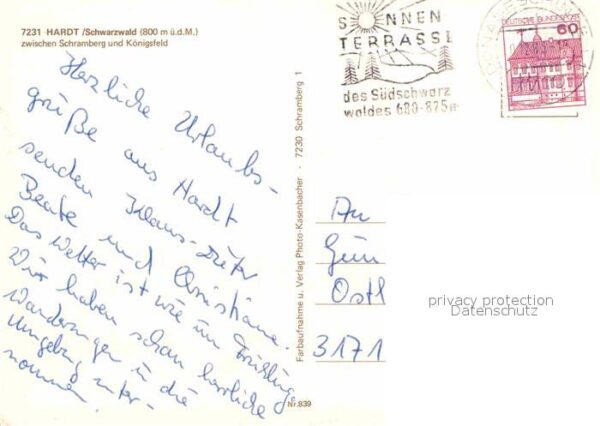 7231 HARDT /Schwarzwald (800 m ü.d.M.)
zwischen Schramberg und Königsfeld
Herzliche Urlaubs-
grüße aus Hardt
senden Klaus-Dieter
Beate und Christiane.
Das Wetter ist wie im Frühling.
Wir haben schon herrliche
Wanderungen in die
Umgebung unter-
nommen.
Farbaufnahme u. Verlag Photo-Kasenbacher · 7230 Schramberg 1
Nr. 839
SONNEN
TERRASSE
des Südschwarz
waldes 680-875 m
DEUTSCHE BUNDESPOST
60
An
Gün
Ostl
3171
privacy protection
Datenschutz